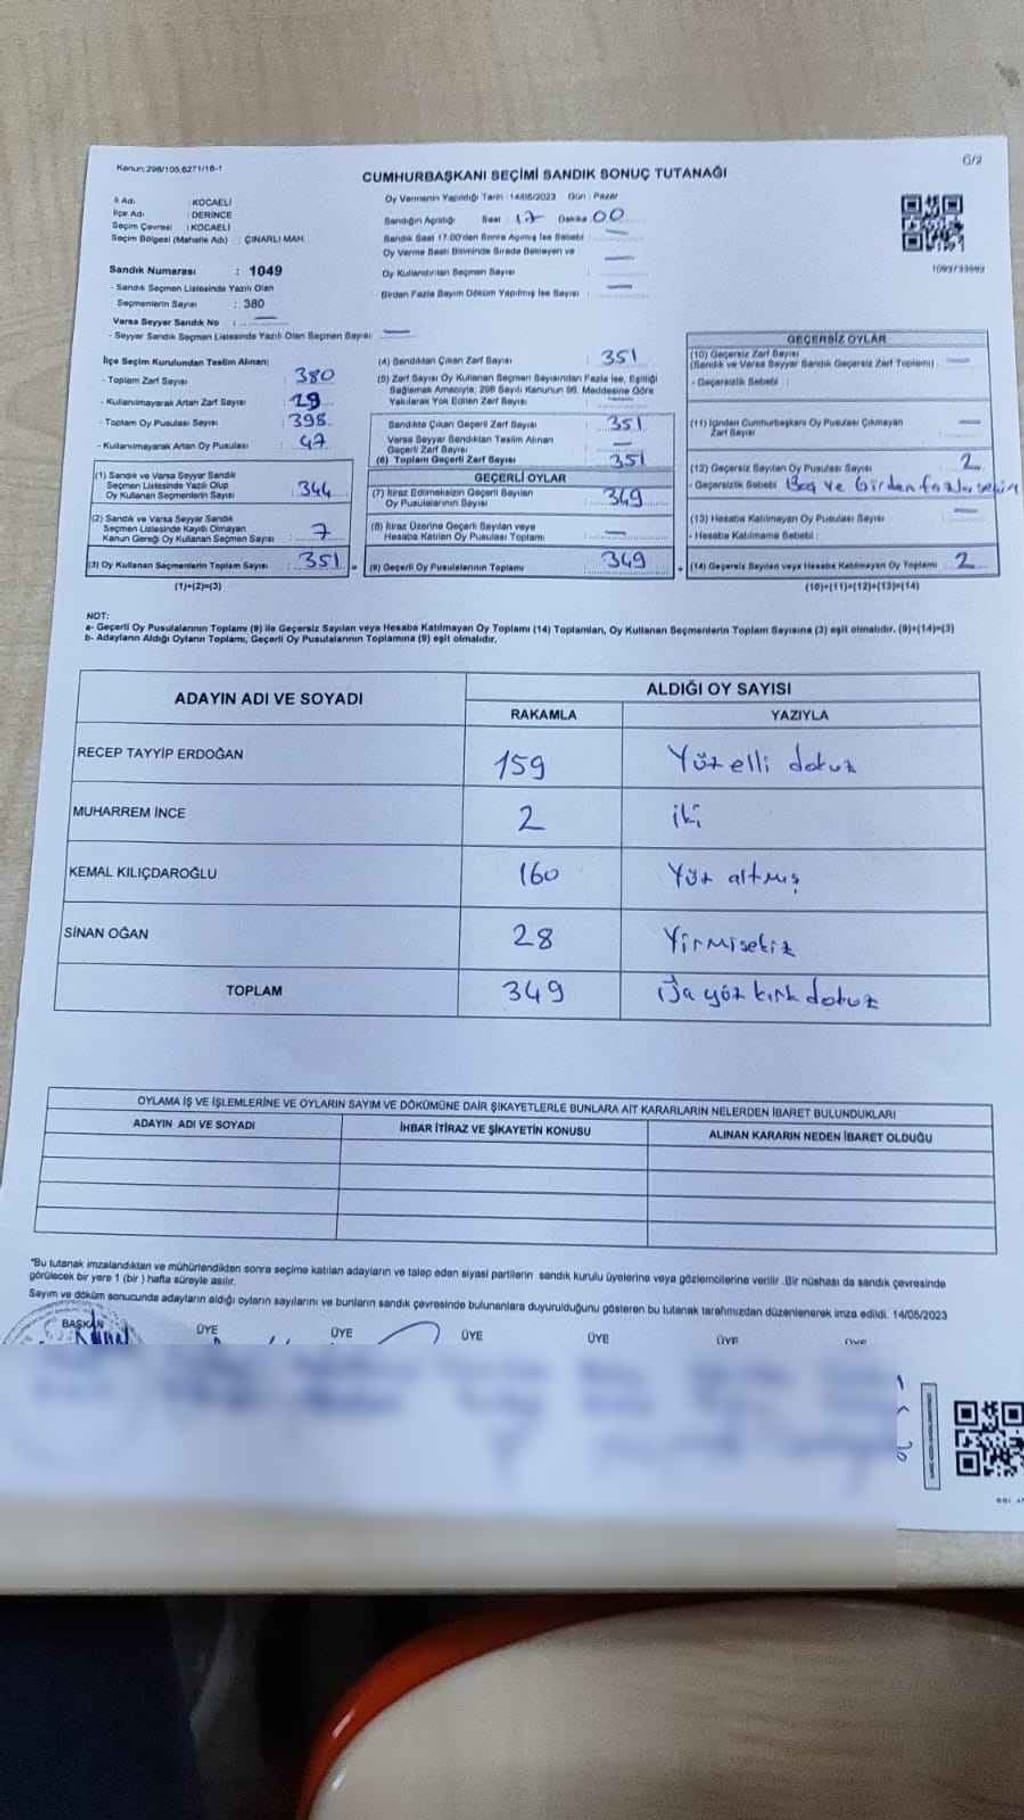 Kanun:298/105,6271/18-1
6/2
CUMHURBAŞKANI SEÇİMİ SANDIK SONUÇ TUTANAĞI
İl Adı : KOCAELİ
İlçe Adı : DERİNCE
Seçim Çevresi : KOCAELİ
Seçim Bölgesi (Mahalle Adı) : ÇINARLI MAH.
Sandık Numarası : 1049
- Sandık Seçmen Listesinde Yazılı Olan
Seçmenlerin Sayısı : 380
Varsa Seyyar Sandık No :
- Seyyar Sandık Seçmen Listesinde Yazılı Olan Seçmen Sayısı
Oy Vermenin Yapıldığı Tarih : 14/05/2023 Gün : Pazar
Sandığın Açıldığı Saat : 17 Dakika 00
Sandık Saat 17:00'den Sonra Açılmış İse Sebebi
Oy Verme Saati Bitiminde Sırada Bekleyen ve
Oy Kullandırılan Seçmen Sayısı
Birden Fazla Sayım Döküm Yapılmış İse Sayısı :
İlçe Seçim Kurulundan Teslim Alınan:
- Toplam Zarf Sayısı : 380
- Kullanılmayarak Artan Zarf Sayısı : 29
- Toplam Oy Pusulası Sayısı : 398
- Kullanılmayarak Artan Oy Pusulası : 47
(1) Sandık ve Varsa Seyyar Sandık
Seçmen Listesinde Yazılı Olup
Oy Kullanan Seçmenlerin Sayısı : 344
(2) Sandık ve Varsa Seyyar Sandık
Seçmen Listesinde Kayıtlı Olmayan
Kanun Gereği Oy Kullanan Seçmen Sayısı : 7
(3) Oy Kullanan Seçmenlerin Toplam Sayısı : 351
(1)+(2)=(3)
(4) Sandıktan Çıkan Zarf Sayısı : 351
(5) Zarf Sayısı Oy Kullanan Seçmen Sayısından Fazla İse, Eşitliği
Sağlamak Amacıyla; 298 Sayılı Kanunun 98. Maddesine Göre
Yakılarak Yok Edilen Zarf Sayısı
Sandıkta Çıkan Geçerli Zarf Sayısı : 351
Varsa Seyyar Sandıktan Teslim Alınan
Geçerli Zarf Sayısı
(6) Toplam Geçerli Zarf Sayısı : 351
GEÇERLİ OYLAR
(7) İtiraz Edilmeksizin Geçerli Sayılan
Oy Pusulalarının Sayısı : 349
(8) İtiraz Üzerine Geçerli Sayılan veya
Hesaba Katılan Oy Pusulası Toplamı
(9) Geçerli Oy Pusulalarının Toplamı : 349
GEÇERSİZ OYLAR
(10) Geçersiz Zarf Sayısı
(Sandık ve Varsa Seyyar Sandık Geçersiz Zarf Toplamı) :
- Geçersizlik Sebebi :
(11) İçinden Cumhurbaşkanı Oy Pusulası Çıkmayan
Zarf Sayısı
(12) Geçersiz Sayılan Oy Pusulası Sayısı : 2
- Geçersizlik Sebebi : Boş ve birden fazla seçim
(13) Hesaba Katılmayan Oy Pusulası Sayısı
- Hesaba Katılmama Sebebi :
(14) Geçersiz Sayılan veya Hesaba Katılmayan Oy Toplamı : 2
(10)+(11)+(12)+(13)=(14)
NOT:
a- Geçerli Oy Pusulalarının Toplamı (9) ile Geçersiz Sayılan veya Hesaba Katılmayan Oy Toplamı (14) Toplamları, Oy Kullanan Seçmenlerin Toplam Sayısına (3) eşit olmalıdır. (9)+(14)=(3)
b- Adayların Aldığı Oyların Toplamı, Geçerli Oy Pusulalarının Toplamına (9) eşit olmalıdır.
ADAYIN ADI VE SOYADI
ALDIĞI OY SAYISI
RAKAMLA YAZIYLA
RECEP TAYYİP ERDOĞAN 159 Yüz elli dokuz
MUHARREM İNCE 2 iki
KEMAL KILIÇDAROĞLU 160 Yüz altmış
SİNAN OĞAN 28 Yirmisekiz
TOPLAM 349 Üç yüz kırk dokuz
OYLAMA İŞ VE İŞLEMLERİNE VE OYLARIN SAYIM VE DÖKÜMÜNE DAİR ŞİKAYETLERLE BUNLARA AİT KARARLARIN NELERDEN İBARET BULUNDUKLARI
ADAYIN ADI VE SOYADI İHBAR İTİRAZ VE ŞİKAYETİN KONUSU ALINAN KARARIN NEDEN İBARET OLDUĞU
"Bu tutanak imzalandıktan ve mühürlendikten sonra seçime katılan adayların ve talep eden siyasi partilerin sandık kurulu üyelerine veya gözlemcilerine verilir. Bir nüshası da sandık çevresinde
görülecek bir yere 1 (bir) hafta süreyle asılır.
Sayım ve döküm sonucunda adayların aldığı oyların sayılarını ve bunların sandık çevresinde bulunanlara duyurulduğunu gösteren bu tutanak tarafımızdan düzenlenerek imza edildi. 14/05/2023
BAŞKAN ÜYE ÜYE ÜYE ÜYE ÜYE ÜYE